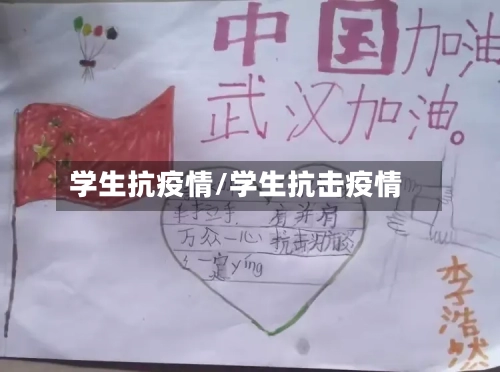 中国加油
武汉加油。
学生抗疫情/学生抗击疫情
手拉手
万众一心 抗击
一定yíng
李浩然